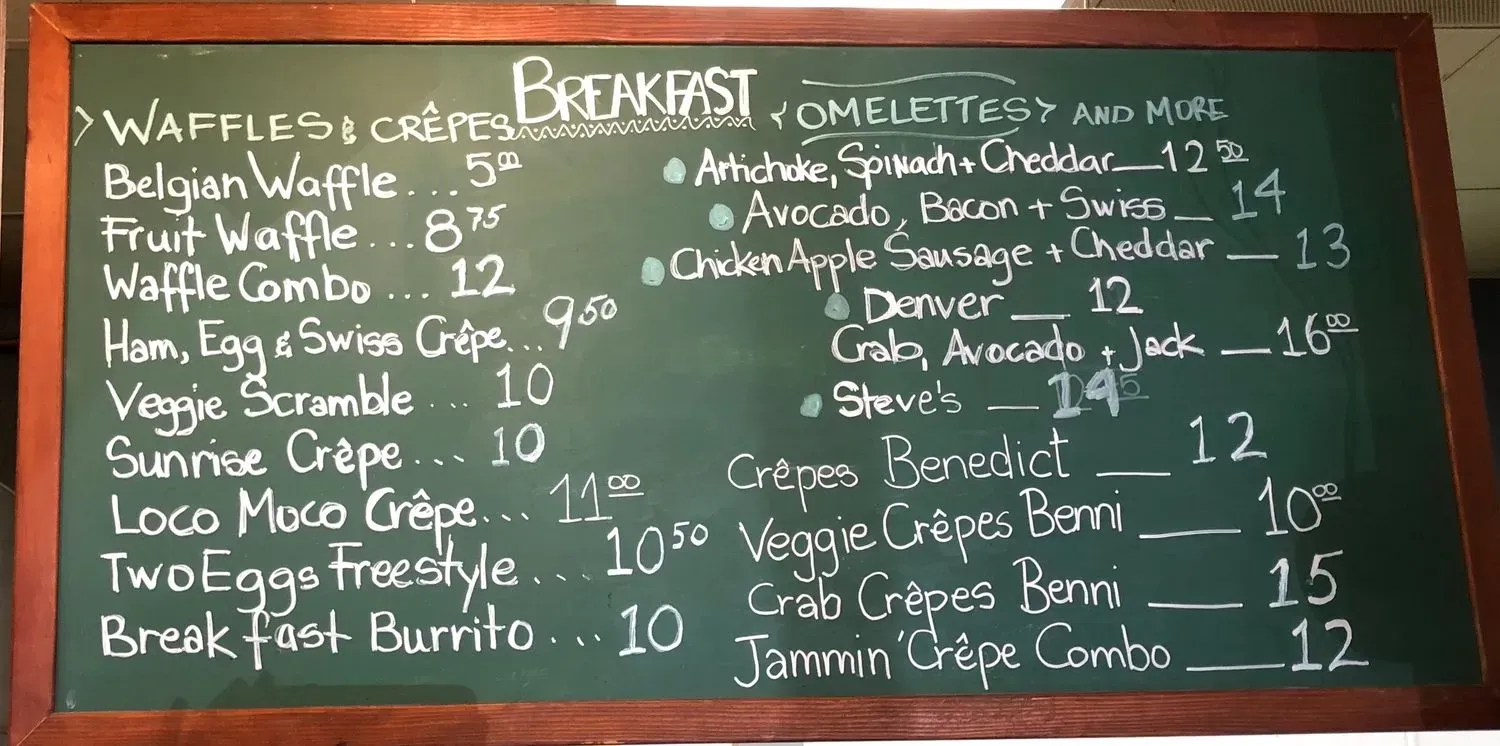 BREAKFAST
WAFFLES & CRÊPES
Belgian Waffle... 5.00
Fruit Waffle... 8 75
Waffle Combo ... 12
Ham, Egg & Swiss Crêpe... 9 50
Veggie Scramble ... 10
Sunrise Crêpe... 10
Loco Moco Crêpe... 11 00
Two Eggs Freestyle... 10 50
Breakfast Burrito... 10
OMELETTES AND MORE
Artichoke, Spinach + Cheddar — 12 50
Avocado, Bacon + Swiss — 14
Chicken Apple Sausage + Cheddar — 13
Denver — 12
Crab, Avocado + Jack — 16 00
Steve's — 14
Crêpes Benedict — 12
Veggie Crêpes Benni — 10 00
Crab Crêpes Benni — 15
Jammin' Crêpe Combo — 12